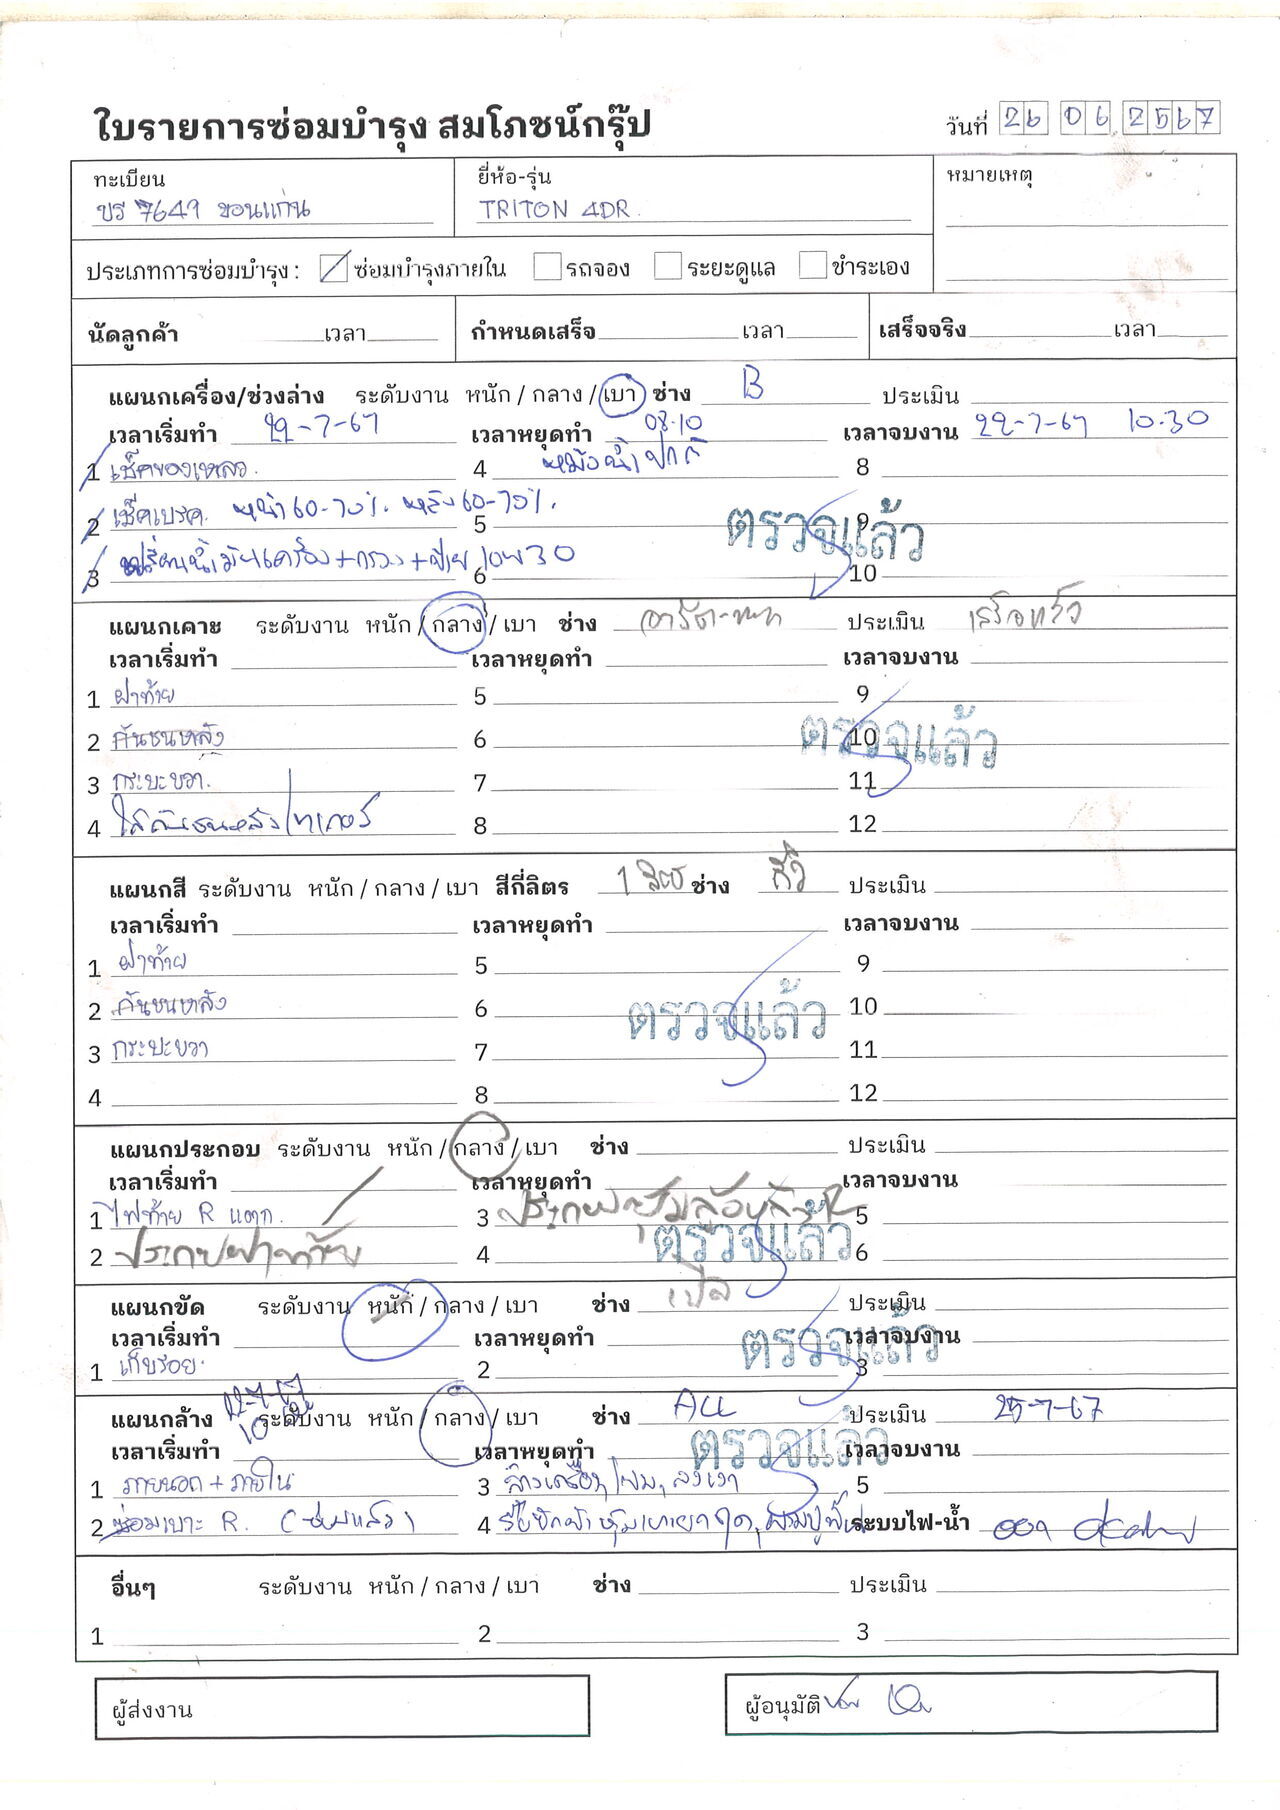 ใบรายการซ่อมบำรุง สมโภชน์กรุ๊ป
วันที่ 26 06 2567
ทะเบียน ยี่ห้อ-รุ่น หมายเหตุ
ขรี 7649 ขอนแก่น TRITON 4DR
ประเภทการซ่อมบำรุง : ซ่อมบำรุงภายใน รถจอง ระยะดูแล ชำระเอง
นัดลูกค้า เวลา กำหนดเสร็จ เวลา เสร็จจริง เวลา
แผนกเครื่อง/ช่วงล่าง ระดับงาน หนัก / กลาง / เบา ช่าง B ประเมิน
เวลาเริ่มทำ 22-7-67 เวลาหยุดทำ 08.10 เวลาจบงาน 22-7-67 10.30
1 เช็คของเหลว. 4 หม้อน้ำปกติ 8
2 เช็คเบรค. หน้า 60-70%. หลัง 60-70%. 5 9
ตรวจแล้ว
3 เปลี่ยนน้ำมันเครื่อง+กรอง+ป้าย 10W30 6 10
แผนกเคาะ ระดับงาน หนัก / กลาง / เบา ช่าง ประเมิน เสร็จแล้ว
เวลาเริ่มทำ เวลาหยุดทำ เวลาจบงาน
1 ฝาท้าย 5 9
2 กันชนหลัง 6 10
ตรวจแล้ว
3 กระบะขวา. 7 11
4 ใส่กันชนหลัง 8 12
แผนกสี ระดับงาน หนัก / กลาง / เบา สีกี่ลิตร 1 ลิตร ช่าง ประเมิน
เวลาเริ่มทำ เวลาหยุดทำ เวลาจบงาน
1 ฝาท้าย 5 9
2 กันชนหลัง 6 10
ตรวจแล้ว
3 กระบะขวา 7 11
4 8 12
แผนกประกอบ ระดับงาน หนัก / กลาง / เบา ช่าง ประเมิน
เวลาเริ่มทำ เวลาหยุดทำ เวลาจบงาน
1 ไฟท้าย R แตก. 3 5
2 ประกอบฝาท้าย 4 6
ตรวจแล้ว
แผนกขัด ระดับงาน หนัก / กลาง / เบา ช่าง เปิ้ล ประเมิน
เวลาเริ่มทำ เวลาหยุดทำ เวลาจบงาน
ตรวจแล้ว
1 เก็บรอย. 2 3
แผนกล้าง ระดับงาน หนัก / กลาง / เบา ช่าง ALL ประเมิน 25-7-67
เวลาเริ่มทำ เวลาหยุดทำ เวลาจบงาน
ตรวจแล้ว
1 ภายนอก + ภายใน 3 ล้างเครื่อง 5
2 ซ่อมเบาะ R. (ซ่อมแล้ว) 4 ระบบไฟ-น้ำ
อื่นๆ ระดับงาน หนัก / กลาง / เบา ช่าง ประเมิน
1 2 3
ผู้ส่งงาน ผู้อนุมัติ